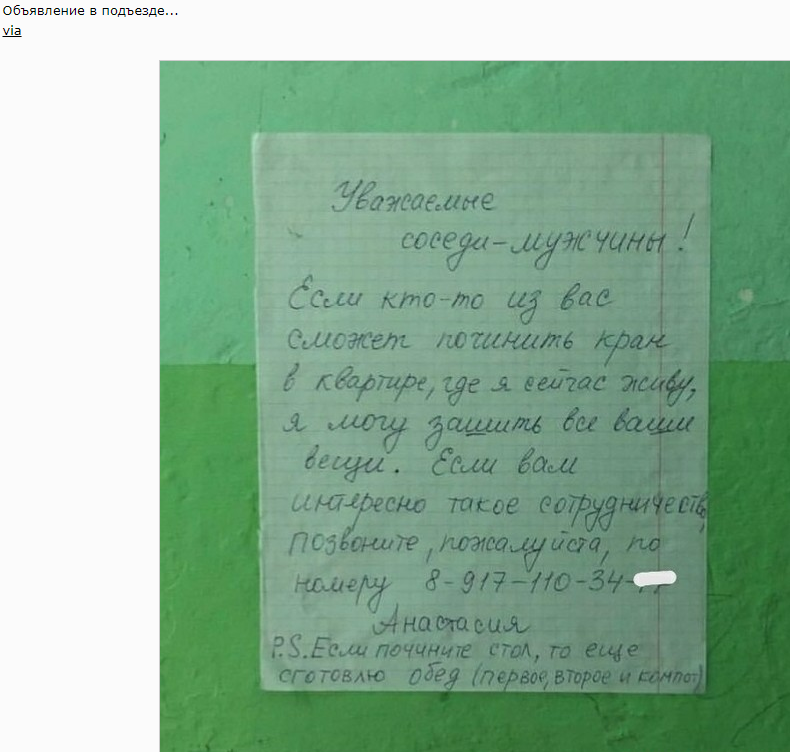 Объявление в подъезде...
via
Уважаемые
соседи-мужчины!
Если кто-то из вас
сможет починить кран
в квартире, где я сейчас живу,
я могу зашить все ваши
вещи. Если вам
интересно такое сотрудничество,
позвоните, пожалуйста, по
номеру 8-917-110-34-
Анастасия
P.S. Если почините стол, то еще
сготовлю обед (первое, второе и компот)